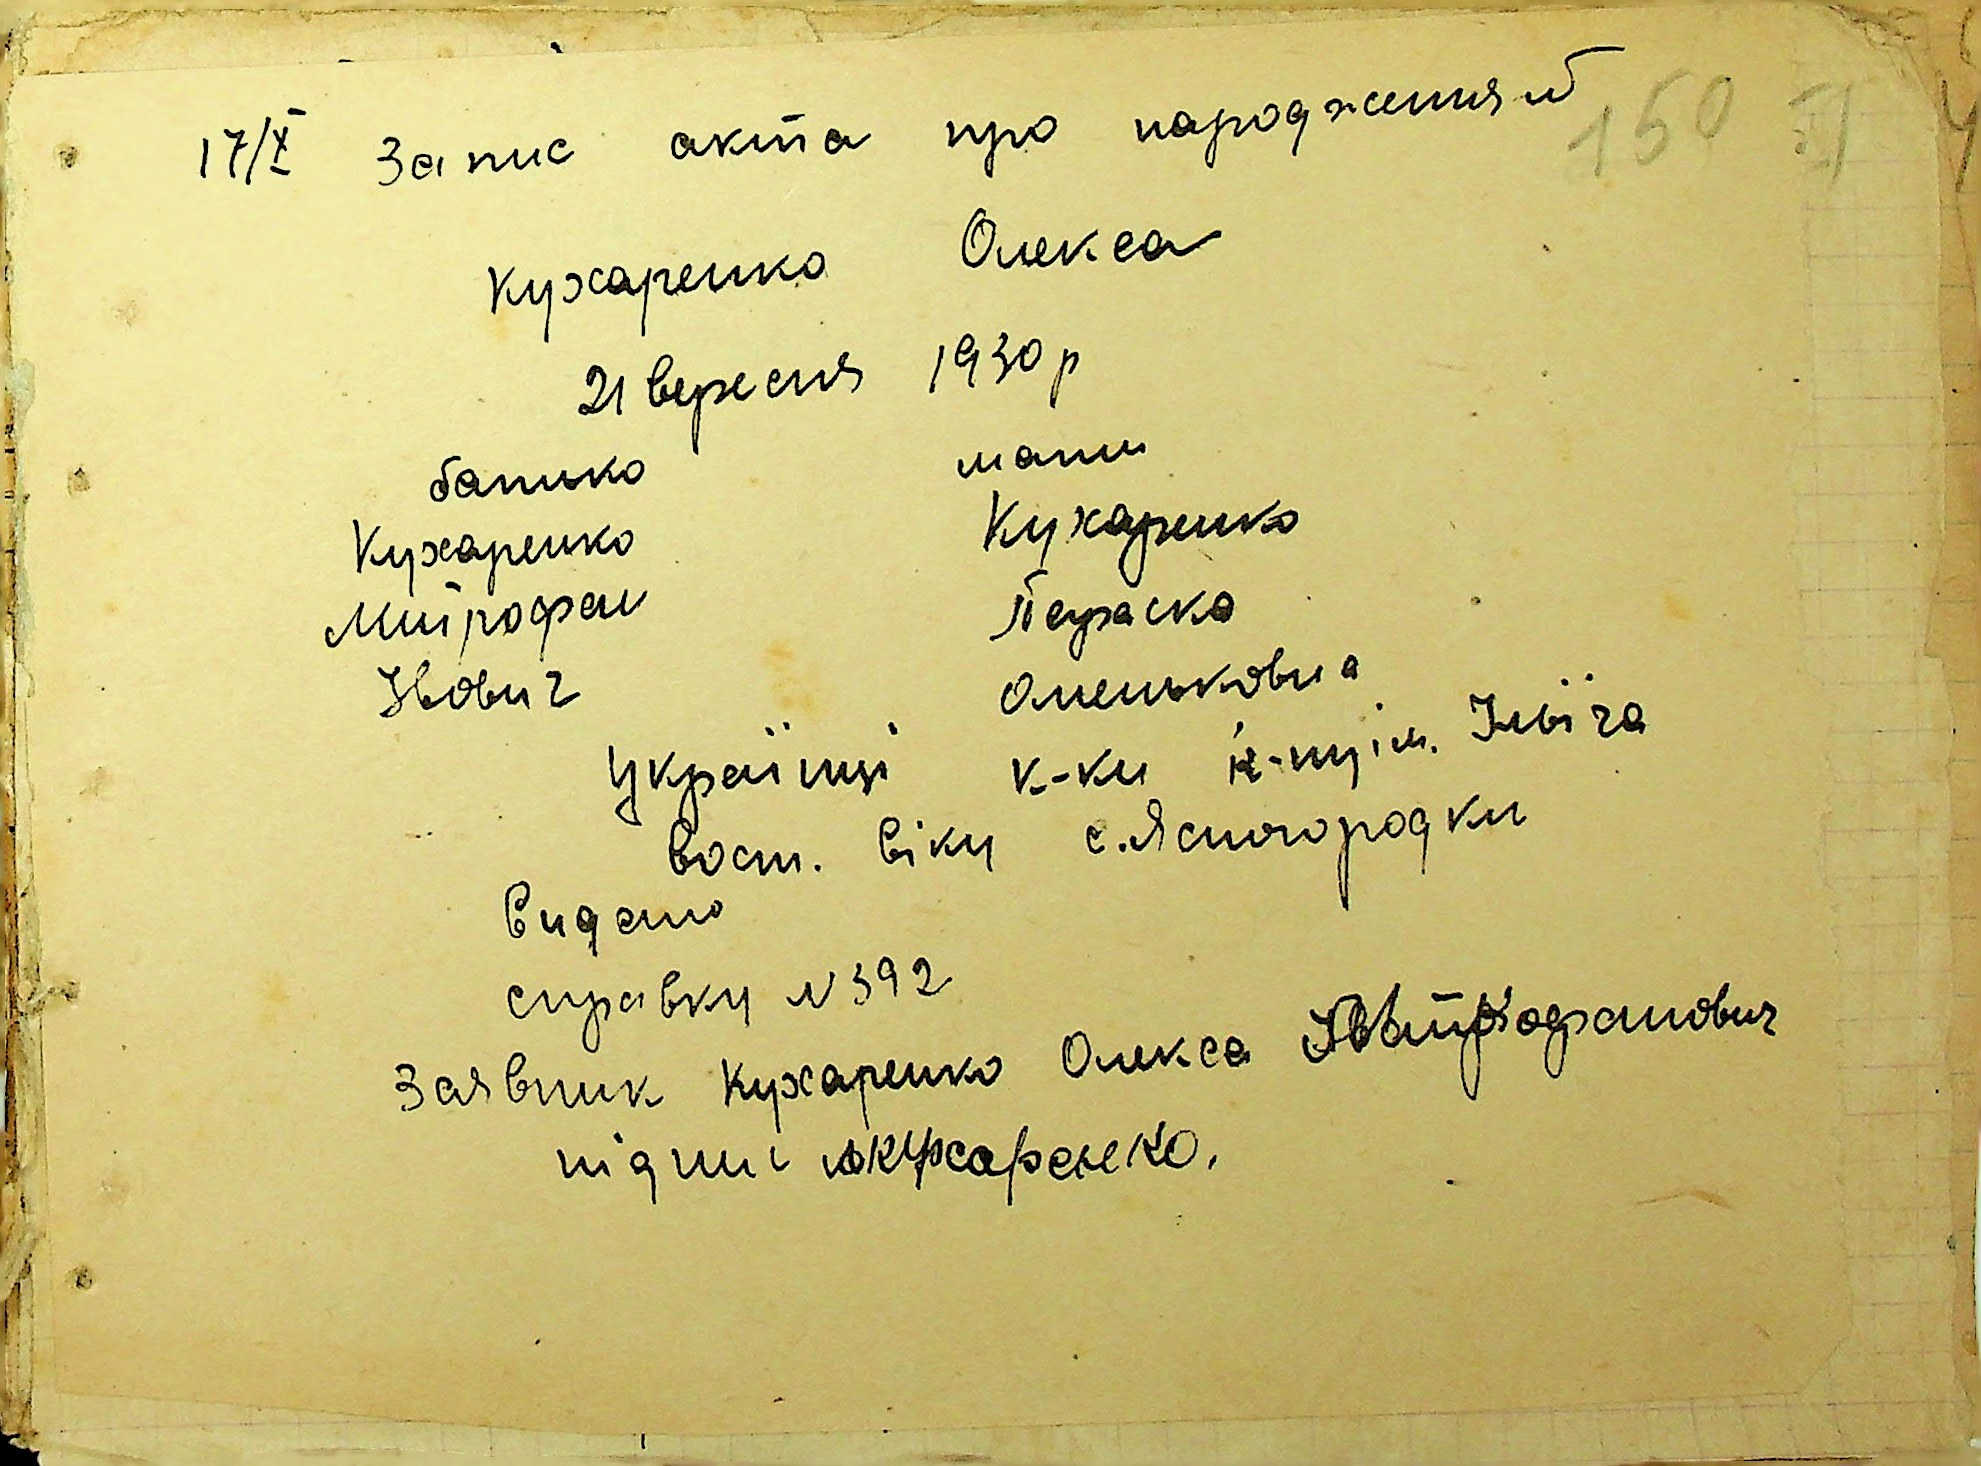 17/X Запис акта про народження № 150
Кухаренко Олекса
21 вересня 1930 р
батько мати
Кухаренко Кухаренко
Митрофан Параска
Івович Омельковна
Українці к-ки к-пу ім. Ілліча
вост. віку с. Ясногородки
Видано
справку N 392
Заявник Кухаренко Олекса Митрофанович
підпис Кухаренко.